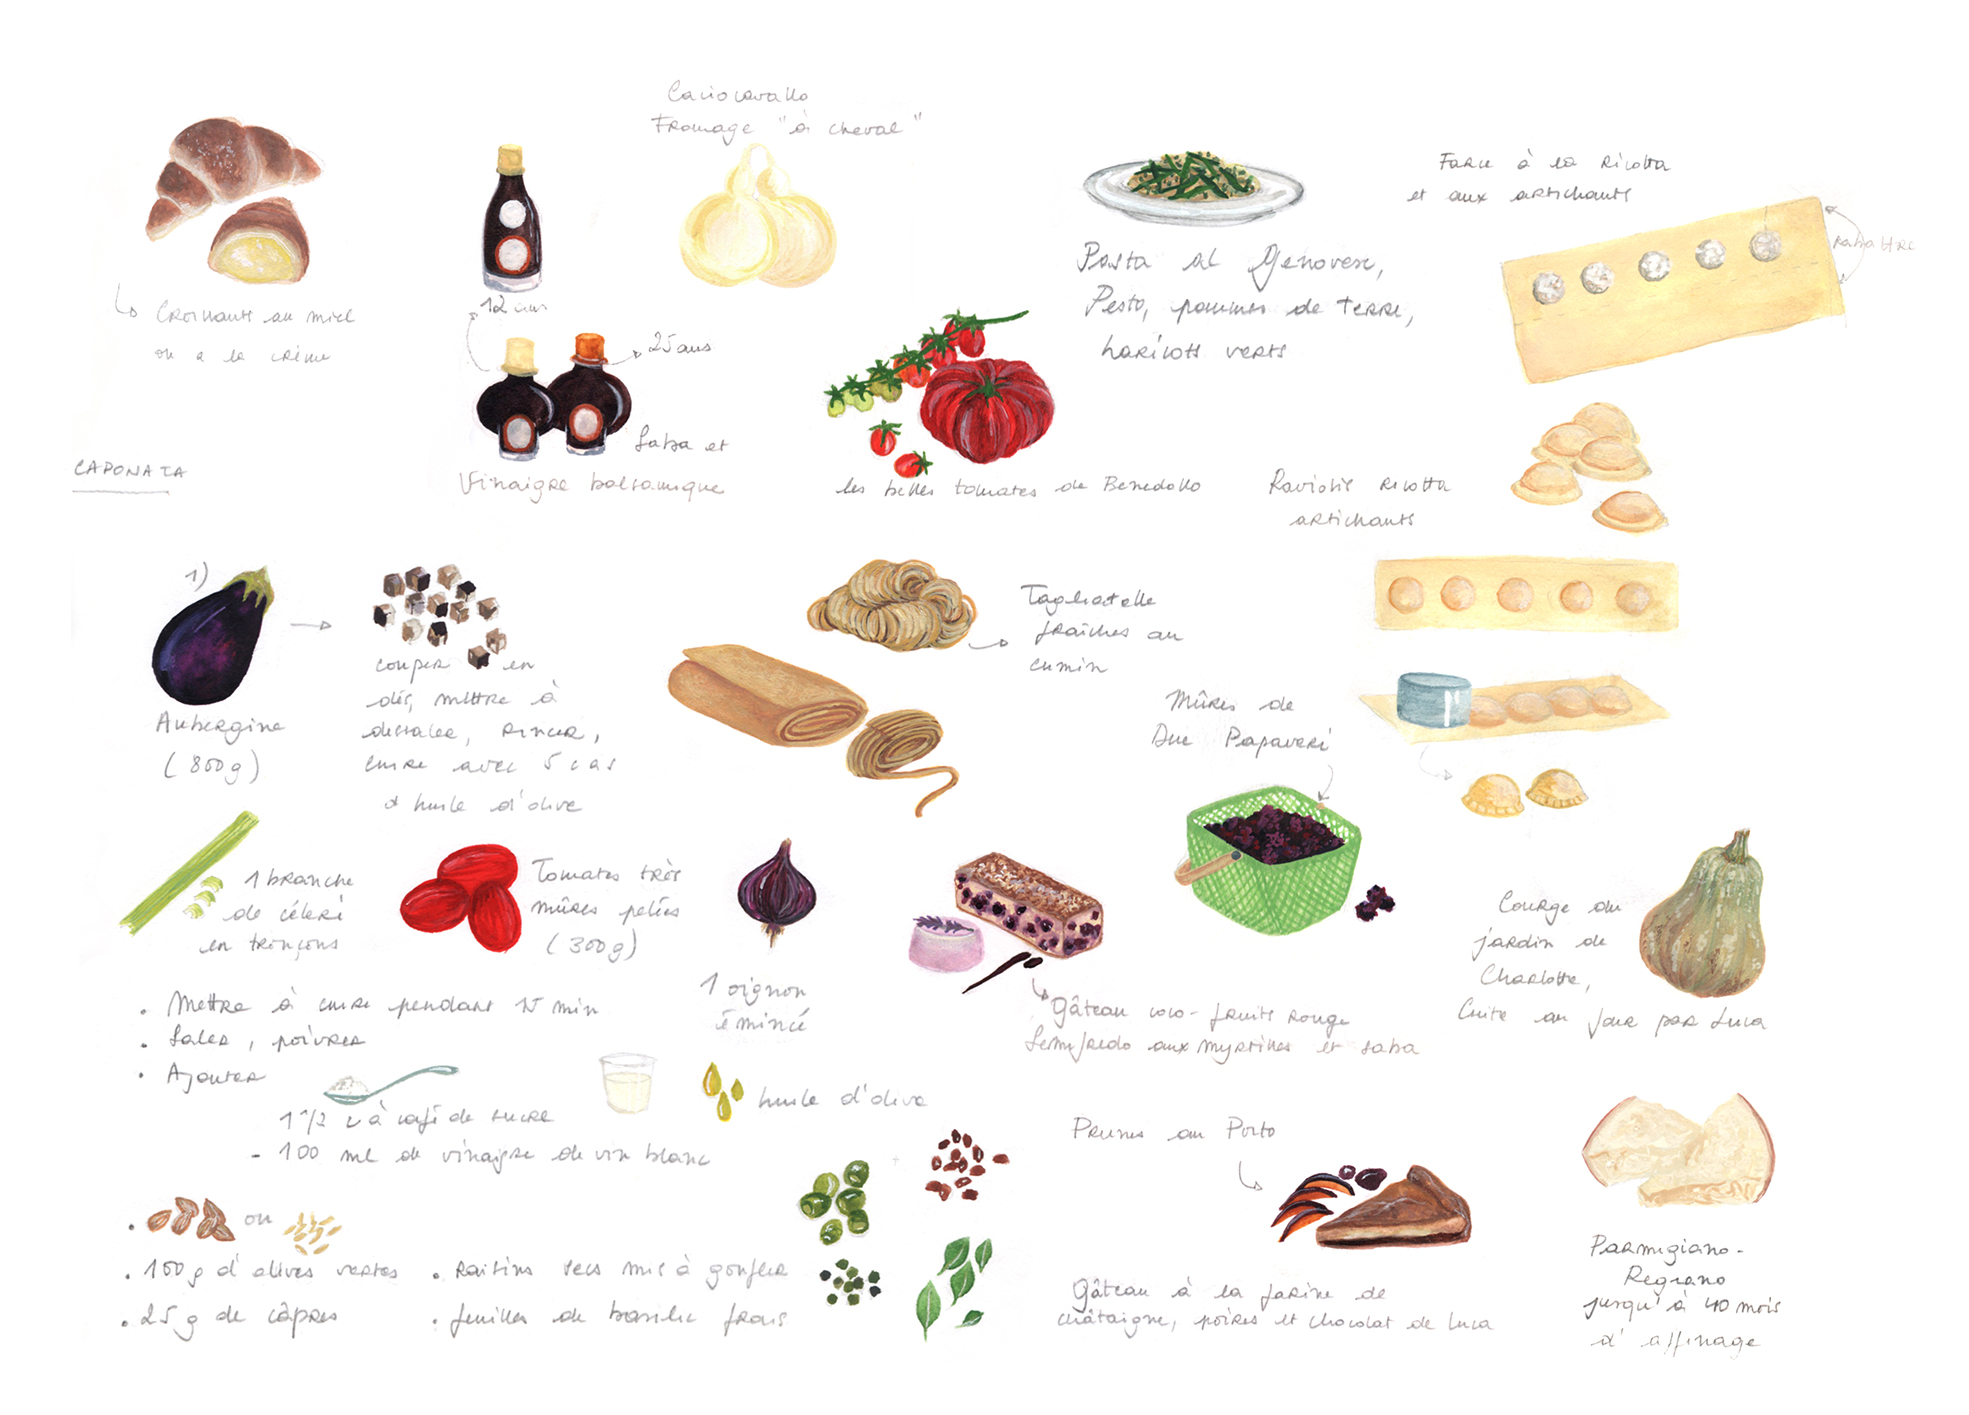 Caciocavallo
Fromage "à cheval"
Croissants au miel
ou a la crème
12 ans
25 ans
Saba et
Vinaigre balsamique
les belles tomates de Benedetto
Pasta al Genovese,
Pesto, pommes de terre,
haricots verts
Farce à la ricotta
et aux artichauts
rabattre
Raviolis ricotta
artichauts
CAPONATA
1)
Aubergine
(800g)
couper en
dés, mettre à
dessaler, rincer,
cuire avec 5 c a s
d'huile d'olive
Tagliatelle
fraîches au
cumin
Mûres de
Due Papaveri
1 branche
de céleri
en tronçons
Tomates très
mûres pelées
(300g)
1 oignon
émincé
Gâteau coco-fruits rouge
Semifredo aux myrtilles et saba
Courge du
jardin de
Charlotte,
Cuite au four par Luca
. Mettre à cuire pendant 15 min
. Saler, poivrer
. Ajouter
1 1/2 c à café de sucre
- 100 ml de vinaigre de vin blanc
huile d'olive
. ou
. 150g d'olives vertes
. 25g de câpres
. Raisins secs mis à gonfler
. feuilles de basilic frais
Prunes au Porto
Gâteau à la farine de
châtaigne, poires et chocolat de Luca
Parmigiano-
Regiano
jusqu'à 40 mois
d'affinage